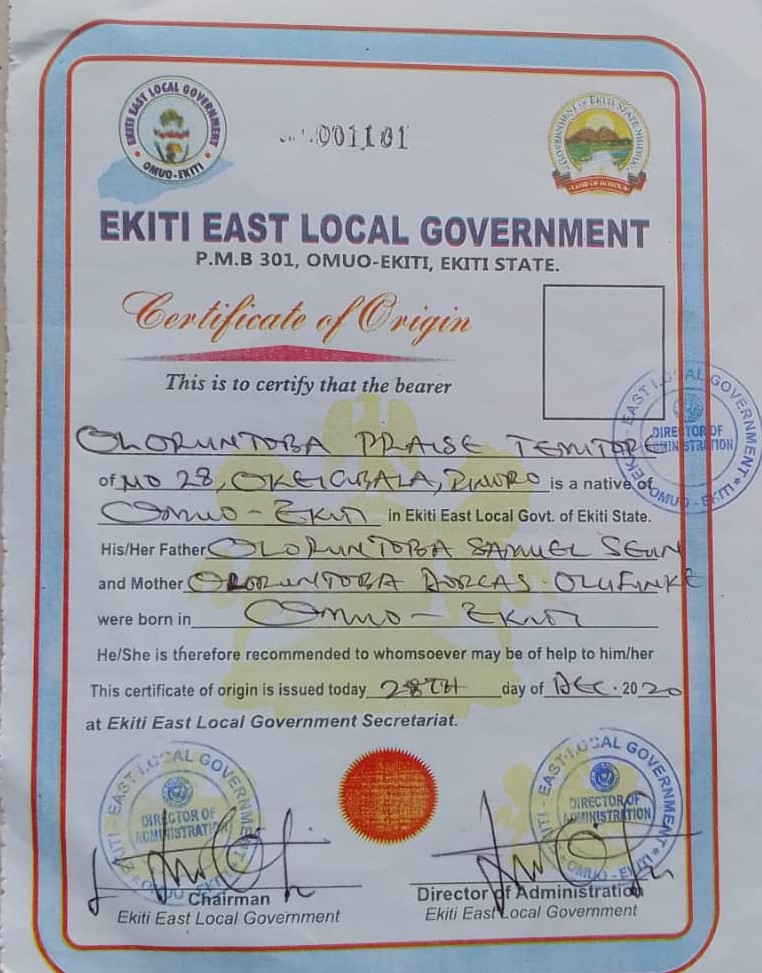 EKITI EAST LOCAL GOVERNMENT
OMUO-EKITI
001101
GOVERNMENT OF EKITI STATE, NIGERIA
LAND OF HONOUR
EKITI EAST LOCAL GOVERNMENT
P.M.B 301, OMUO-EKITI, EKITI STATE.
Certificate of Origin
This is to certify that the bearer
OLORUNTOBA PRAISE TEMITOPE
of NO 28, OKEIGBALA, is a native of
OMUO-EKITI in Ekiti East Local Govt. of Ekiti State.
His/Her Father OLORUNTOBA SAMUEL SEUN
and Mother OLORUNTOBA DORCAS OLUFUNKE
were born in OMUO-EKITI
He/She is therefore recommended to whomsoever may be of help to him/her
This certificate of origin is issued today 28TH day of DEC. 2020
at Ekiti East Local Government Secretariat.
EKITI EAST LOCAL GOVERNMENT
DIRECTOR OF
ADMINISTRATION
OMUO-EKITI
EKITI-EAST LOCAL GOVERNMENT
DIRECTOR OF
ADMINISTRATION
OMUO-EKITI
EKITI-EAST LOCAL GOVERNMENT
DIRECTOR OF
ADMINISTRATION
OMUO-EKITI
Chairman
Ekiti East Local Government
Director of Administration
Ekiti East Local Government